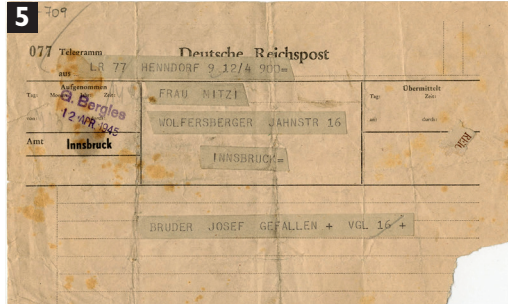 5
709
077 Telegramm Deutsche Reichspost
aus LR 77 HENNDORF 9 12/4 900=
Aufgenommen
Tag: Zeit:
G. Bergles
12 APR 1945
FRAU MITZI
WOLFERSBERGER JAHNSTR 16
INNSBRUCK=
Übermittelt
Tag: Zeit:
an: durch:
Amt Innsbruck
BRUDER JOSEF GEFALLEN + VGL 16 +